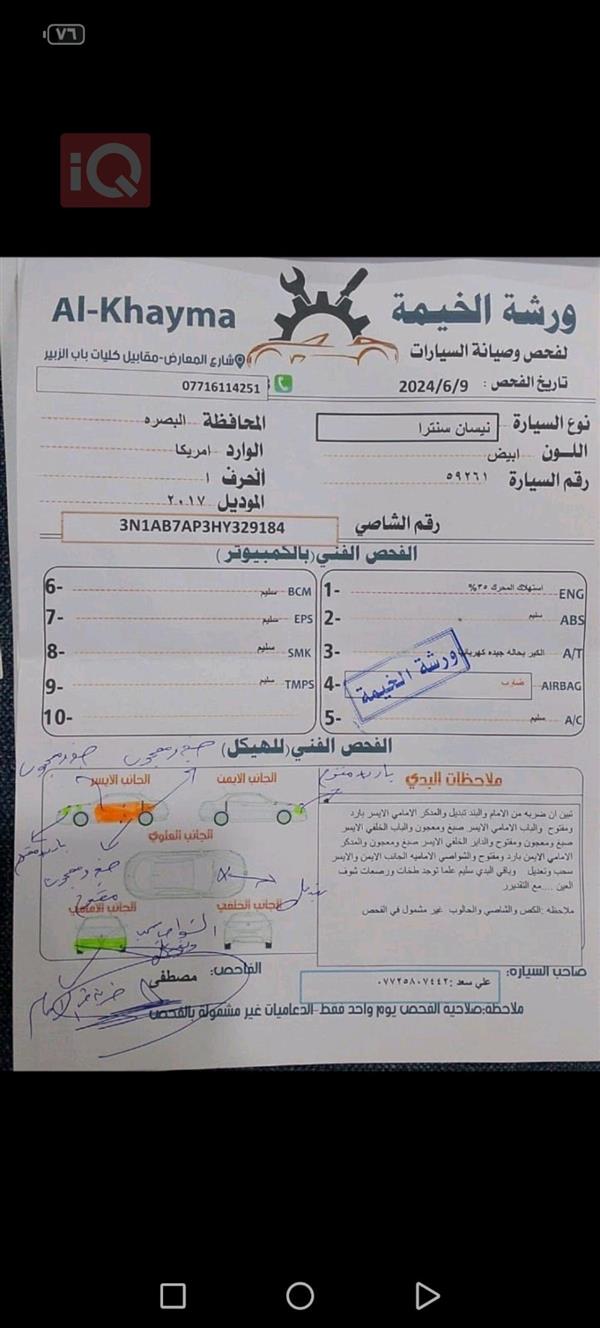 ٧٦
iQ
Al-Khayma
ورشة الخيمة
لفحص وصيانة السيارات
شارع المعارض-مقابيل كليات باب الزبير
07716114251
تاريخ الفحص : 2024/6/9
نوع السيارة نيسان سنترا
المحافظة البصره
اللـــون ابيض
الوارد امريكا
رقم السيارة ٥٩٢٦١
الحرف ا
الموديل ٢٠١٧
رقم الشاصي 3N1AB7AP3HY329184
الفحص الفني(بالكمبيوتر)
1- استهلاك المحرك ٣٥% ENG
2- سليم ABS
3- الكير بحاله جيده كهربائيا A/T
4- ضارب AIRBAG
5- سليم A/C
ورشة الخيمة
6- سليم BCM
7- سليم EPS
8- سليم SMK
9- سليم TMPS
10-
الفحص الفني(للهيكل)
ملاحظات البدي
تبين ان ضربه من الامام والبند تبديل والمدكر الامامي الايسر بارد
ومفتوح والباب الامامي الايسر صبغ ومعجون والباب الخلفي الايسر
صبغ ومعجون ومفتوح والداير الخلفي الايسر صبغ ومعجون والمدكر
الامامي الايمن بارد ومفتوح والشواصي الاماميه الجانب الايمن والايسر
سحب وتعديل وباقي البدي سليم علما توجد طخات ورصعات شوف
العين ....مع التقديرر
ملاحظه :الكص والشاصي والحالوب غير مشمول في الفحص
صبغ ومعجون
صبغ ومعجون
بارد مفتوح
الجانب الايمن
الجانب الايسر
بارد مفتوح
الجانب العلوي
صبغ ومعجون
مفتوح
تبديل
الجانب الخلفي
الجانب الامامي
الشواصي سحب
وتعديل
ضربة من الامام
صاحب السياره: علي سعد :٠٧٧٢٥٨٠٧٤٤٢
الفاحص: مصطفى
ملاحظة:صلاحية الفحص يوم واحد فقط-الدعاميات غير مشمولة بالفحص